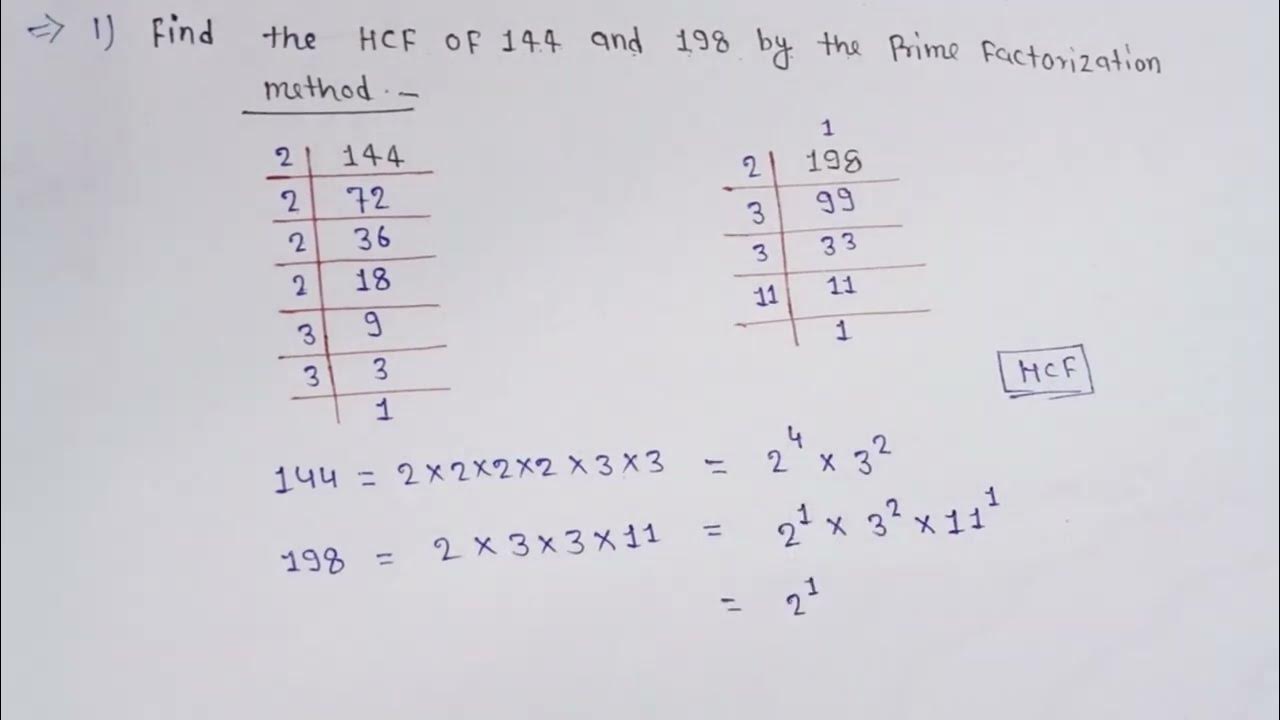 ⇒ 1) Find the HCF OF 144 and 198 by the Prime Factorization
method.-
2 | 144
2 | 72
2 | 36
2 | 18
3 | 9
3 | 3
1
1
2 | 198
3 | 99
3 | 33
11 | 11
1
HCF
144 = 2×2×2×2×3×3 = 2⁴ × 3²
198 = 2×3×3×11 = 2¹ × 3² × 11¹
= 2¹